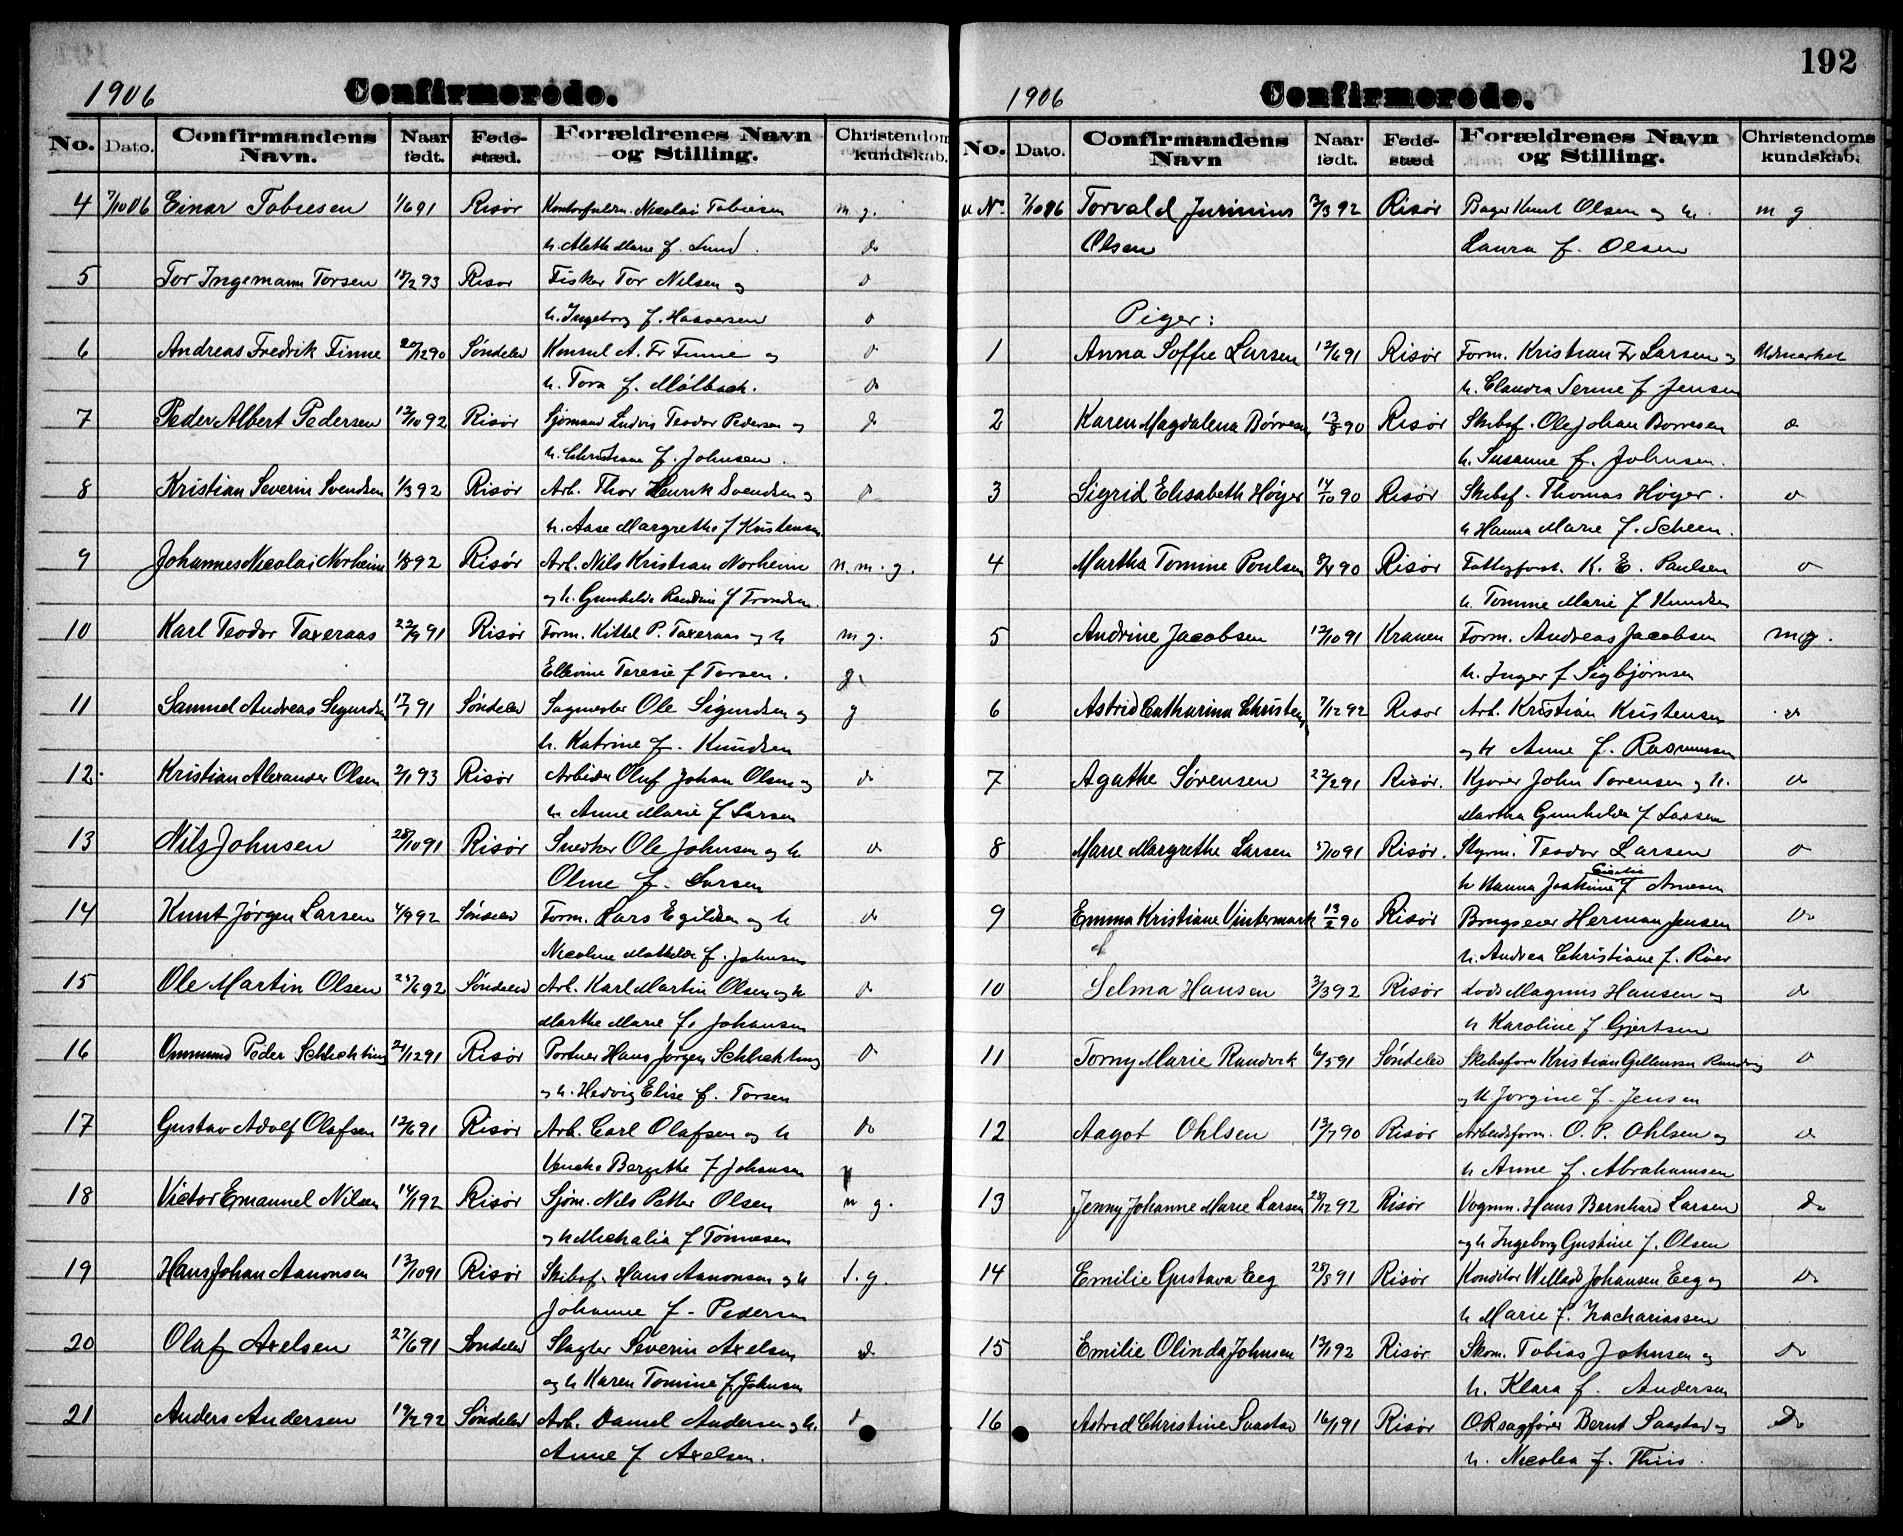 1906 Confirmerede.
No. Dato. Confirmandens Navn. Naar født. Føde-sted. Forældrenes Navn og Stilling. Christendoms kundskab.
4 7/10 06 Einar Tobiesen 1/6 91 Risør Nicolai Tobiesen m g.
h. Marie f. Lund. do
5 Tor Ingemann Torsen 18/2 93 Risør Fisker Tor Nilsen og do
h. Ingeborg f. Haavorsen do
6 Andreas Fredrik Finne 20/12 90 Søndeled Konsul A. Fr Finne og do
h. Tora f. Mølbach. do
7 Peder Albert Pedersen 12/10 92 Risør Sjømand Ludvig Teodor Pedersen og do
h. Christiane f. Johnsen.
8 Kristian Severin Svendsen 1/3 92 Risør Arb. Thor Henrik Svendsen og do
h. Aase Margrethe f Kristensen
9 Johannes Nicolai Norheim 1/8 92 Risør Arb. Nils Kristian Norheim n. m. g.
og h. Gunhilde Randine f Trondsen.
10 Karl Teodor Taxeraas 22/9 91 Risør Form. Kittel P. Taxeraas og h m g.
Ellevine Teresie f Torsen. g.
11 Samuel Andreas Sigurdsen 17/7 91 Søndeled Sagmester Ole Sigurdsen og g
h. Katrine f. Knudsen
12. Kristian Alexander Olsen 2/1 93 Risør Arbeider Oluf Johan Olsen og do
h Anne Marie f Larsen
13 Nils Johnsen 28/10 91 Risør Snedker Ole Johnsen og h do
Oline f. Larsen
14 Knut Jørgen Larsen 4/9 92 Søndeled Form. Lars Egildsen og h do
Nicoline Mathilde f. Johnsen
15 Ole Martin Olsen 24/6 92 Søndeled Arb. Karl Martin Olsen og h do
Marthe Marie f. Johansen
16 Ommund Peder Schlichting 24/12 91 Risør Portner Hans Jørgen Schlichting do
og h. Hedvig Elise f. Torsen
17 Gustav Adolf Olafsen 12/6 91 Risør Arb. Carl Olafsen og h do
Bergithe f Johansen
18 Victor Emanuel Nilsen 14/1 92 Risør Sjøm. Nils Petter Olsen m g.
og h Michalia f Tønnesen
19 Hans Johan Aanonsen 12/10 91 Risør Skibsf. Hans Aanonsen og h t. g.
Johanne f. Pedersen
20 Olaf Axelsen 27/6 91 Søndeled Slagter Severin Axelsen do
og h Karen Tomine f. Johnsen
21 Anders Andersen 19/2 92 Søndeled Arb. Daniel Andersen og h. do
Anne f Axelsen.
192
1906 Confirmerede.
No. Dato. Confirmandens Navn Naar født. Føde-sted Forældrenes Navn og Stilling. Christendoms kundskab.
u No. 7/10 06 Torvald Jurinius 2/3 92 Risør Bager Knut Olsen og h. m g
Olsen Laura f. Olsen
Piger:
1 Anna Soffie Larsen 12/6 91 Risør Form. Kristian Fr Larsen og Udmærket
h. Claudia Serine f Jensen
2 Karen Magdalena Børresen 13/8 90 Risør Skibsf. Ole Johan Børresen do
h. Susanne f. Johnsen.
3 Sigrid Elisabeth Høyer 14/10 90 Risør Skibsf. Thomas Høyer. do
h Hanna Marie f. Scheen.
4 Martha Tomine Poulsen 90 Risør Fattigforst. K. E. Paulsen do
h. Tomine Marie f Knudsen
5 Andrine Jacobsen 12/10 91 Kranen Form. Andreas Jacobsen m g.
h. Inger f Sigbjørnsen
6 Astrid Catharina Christens 7/12 92 Risør Arb. Kristian Kristensen do
og h Anne f. Rasmussen
7 Agathe Sørensen 22/2 91 Risør. Kjører John Sørensen og h. do
Martha Gunhilde f Larsen
8 Marie Margrethe Larsen 5/10 91 Risør. Styrm. Teodor Larsen do
h Hanna Joakime Cecilie f Arnesen
9 Emma Kristiane Vintermark 13/2 90 Risør Brugseier Herman Jensen Do
h. Andrea Christiane f. Røer
10 Selma Hansen 3/3 92 Risør Lods Magnus Hansen og do
h Karoline f Gjertsen
11 Torny Marie Randvik 6/5 91 Søndeled Skibsfører Kristian Gullmusen Randvig do
og h Jørgine f. Jensen
12 Aagot Ohlsen 13/7 90 Risør Arbeidsform. O. P. Ohlsen og do
h Anne f. Abrahamsen
13 Jenny Johanne Marie Larsen 28/12 92 Risør Vognm. Hans Bernhard Larsen Do
og h Ingeborg Gustine f. Olsen
14 Emilie Gustava Eeg 28/8 91 Risør Konditor Willads Johansen Eeg og Do
h Marie f. Zachariassen
15 Emilie Olinda Johnsen 12/1 92 Risør Skom. Tobias Johnsen og Do
h. Klara f. Andersen
16 Astrid Christine Saastad 16/1 91 Risør O.R.sagfører Bernt Saastad og Do
h. Nicolea f. Thiis.